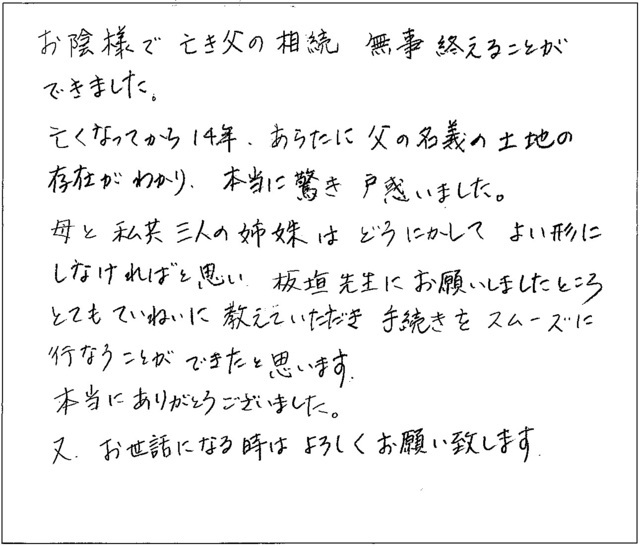 お陰様で 亡き父の相続 無事 終えることが
できました。
亡くなってから14年、あらたに 父の名義の土地の
存在がわかり、本当に驚き 戸惑いました。
母と私共三人の姉妹は どうにかして よい形に
しなければと思い 板垣先生にお願いしましたところ
とてもていねいに 教えていただき 手続きをスムーズに
行なうことができたと思います。
本当にありがとうございました。
又、お世話になる時は よろしくお願い致します。